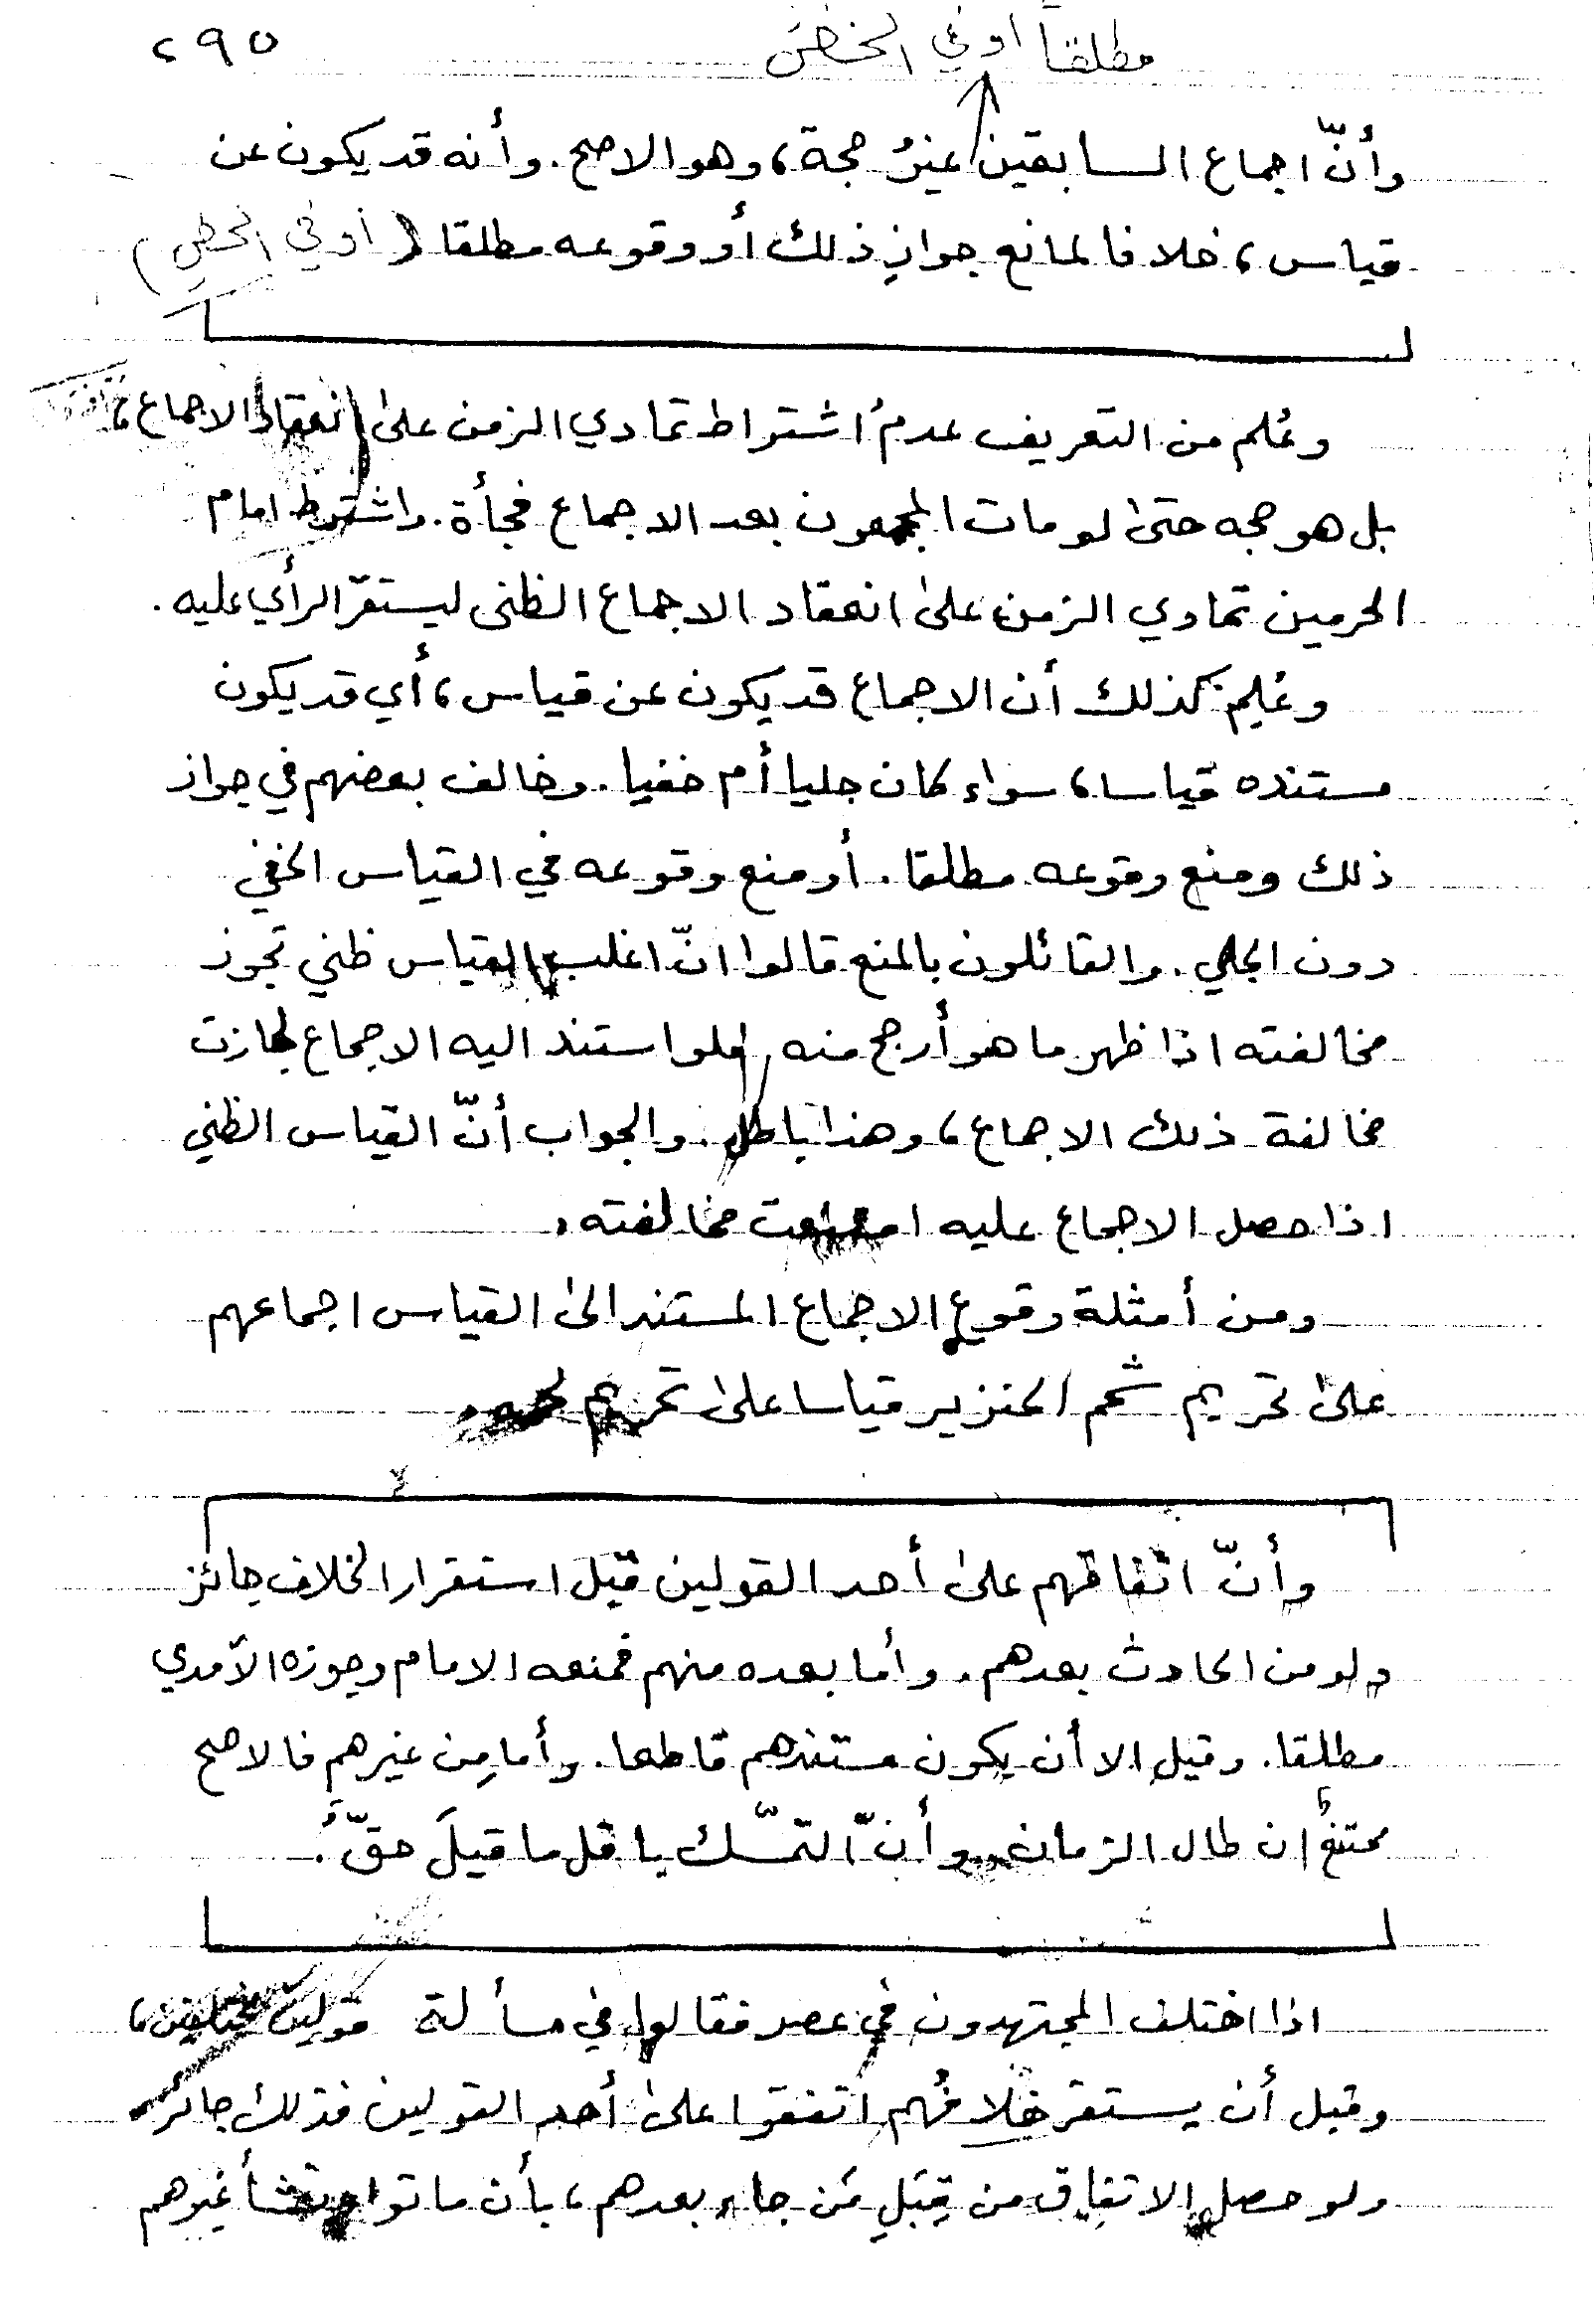 ٢٩٥
مطلقاً او في الخفي
وأنّ اجماع السابقين غيرُ حجة، وهو الاصح. وأنه قد يكون عن
قياس، خلافا لمانع جوازِ ذلك أو وقوعه مطلقا (او في الخفي)
وعُلم من التعريف عدمُ اشتراط تمادي الزمن علىٰ انعقاد الاجماع،
بل هو حجه حتىٰ لو مات المجمعون بعد الاجماع فجأة. واشترط امام
الحرمين تمادي الزمن علىٰ انعقاد الاجماع الظنى ليستقرّ الرأي عليه.
وعُلِم كذلك أن الاجماع قد يكون عن قياس، أي قد يكون
مستنده قياسا، سواء كان جليا أم خفيا. وخالف بعضهم في جواز
ذلك ومنع وقوعه مطلقا. أو منع وقوعه في القياس الخفي
دون الجلي. والقائلون بالمنع قالوا انّ اغلب القياس ظني تجوز
مخالفته اذا ظهر ما هو أرجح منه فلو استند اليه الاجماع لجازت
مخالفة ذلك الاجماع، وهذا باطل. والجواب أنّ القياس الظني
اذا حصل الاجماع عليه امتنعت مخالفته.
ومن أمثلة وقوع الاجماع المستند الىٰ القياس اجماعهم
علىٰ تحريم شحم الخنزير قياسا علىٰ تحريم لحمه.
وأنّ اتفاقهم علىٰ أحد القولين قبل استقرار الخلاف جائز
ولو من الحادث بعدهم. وأما بعده منهم فمنعه الامام وجوزه الآمدي
مطلقا. وقيل الا أن يكون مستندهم قاطعا. وأما مِن غيرهم فالاصح
ممتنعٌ ان طال الزمان. وأنّ التمسّك باقل ما قيلَ حقٌّ.
اذا اختلف المجتهدون في عصر فقالوا في مسألة قولين مختلفين،
وقبل أن يستقر خلافُهم اتفقوا علىٰ أحد القولين فذلك جائز.
ولو حصل الاتفاق من قِبَلِ مَن جاء بعدهم، بأن ماتوا ونشأ غيرهم